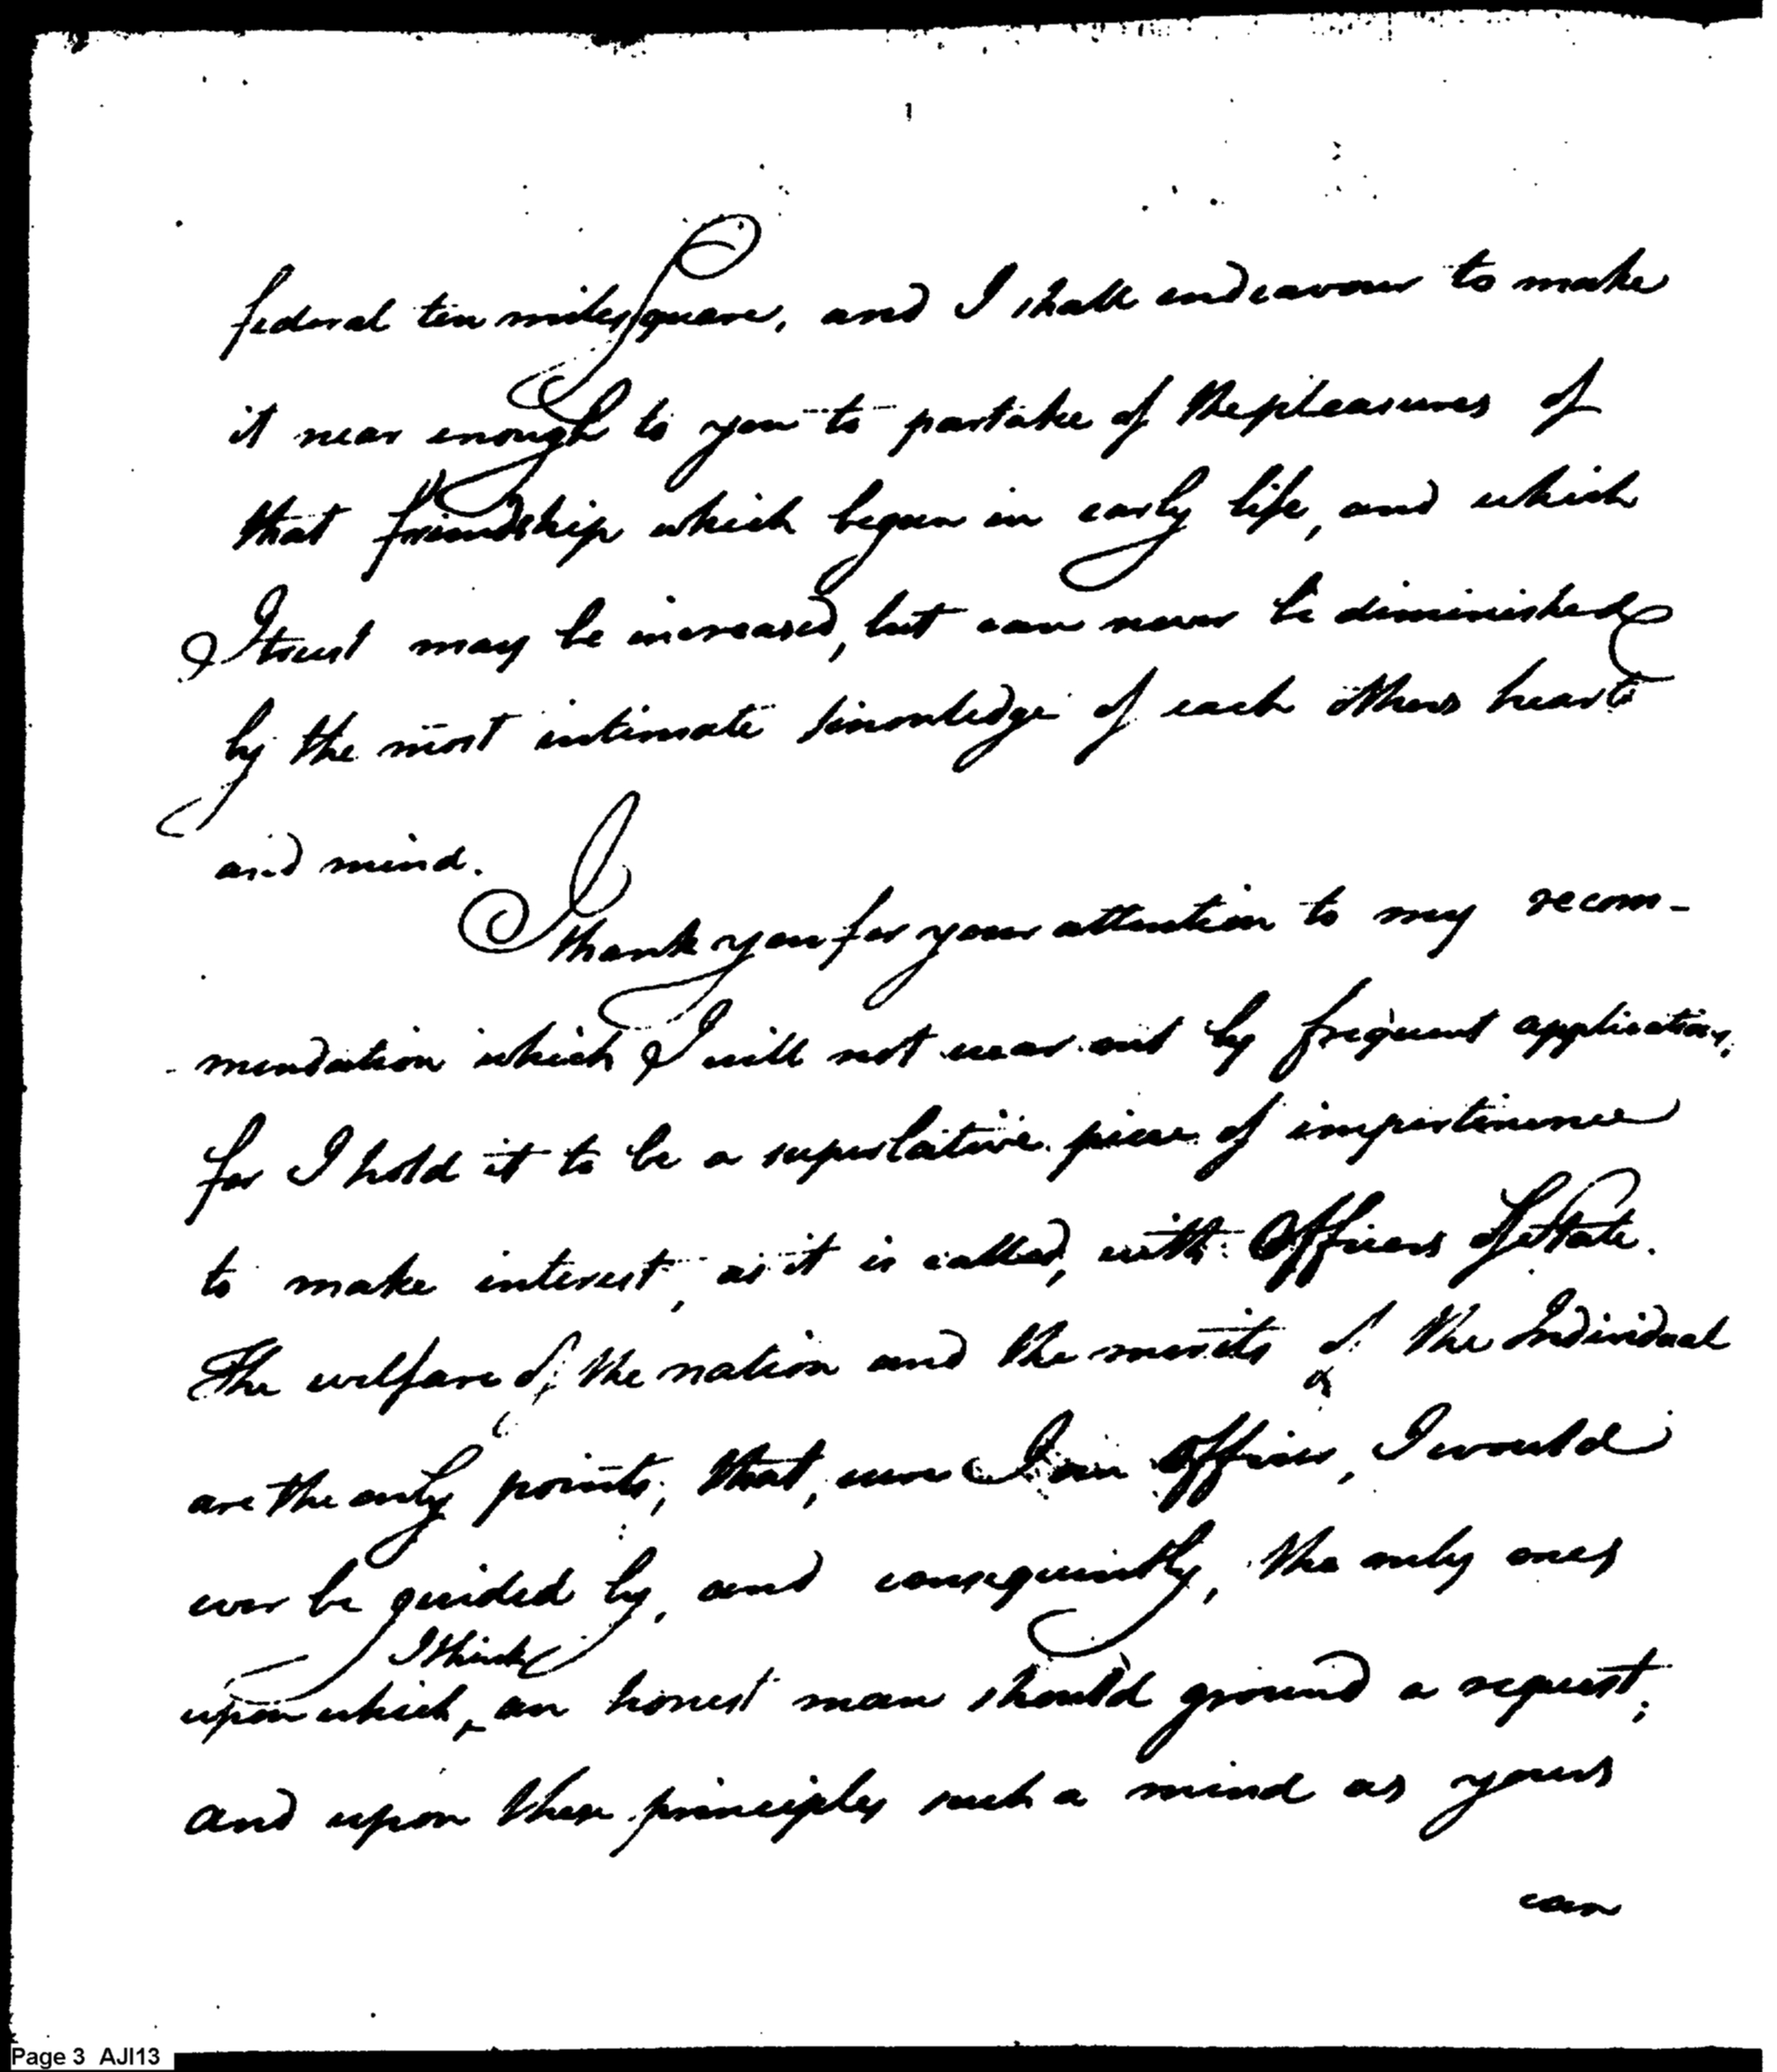 federal ten miles square, and I shall endeavour to make
it near enough to you to partake of the pleasures of
that friendship which began in early life, and which
I trust may be increased, but can never be diminished
by the most intimate knowledge of each others hearts
and mind.
I thank you for your attention to my recom-
-mendation which I will not wear out by frequent application,
for I hold it to be a superlative piece of impertinence
to make interest, as it is called, with Officers of State.
The welfare of the nation and the merits of the Individual
are the only points, that, were I in Office, I would
ever be guided by, and consequently, the only ones
I think
upon which ‸ an honest man should ground a request;
and upon these principles such a mind as yours
can
Page 3 AJI13